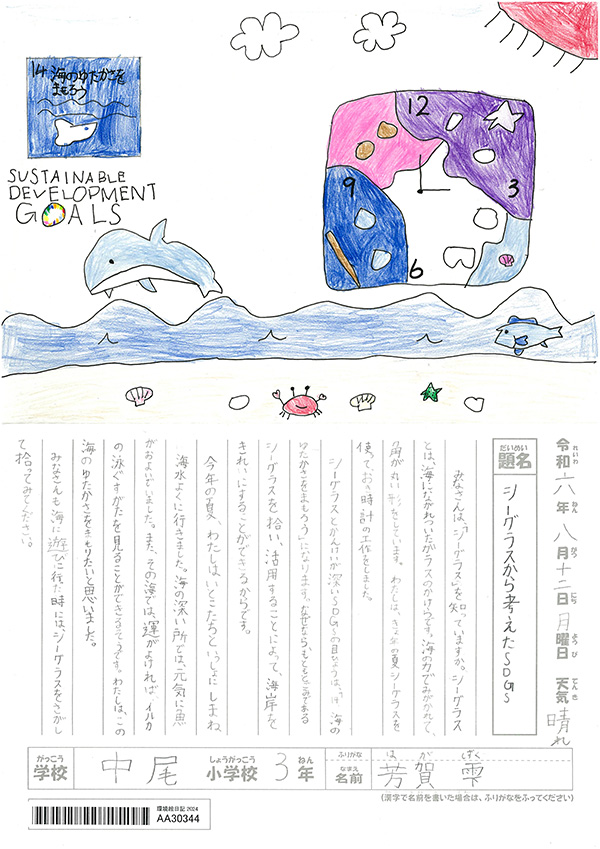 14 海のゆたかさを
まもろう
SUSTAINABLE
DEVELOPMENT
GOALS
12
3
6
9
令和六年八月十二日月曜日 天気晴れ
れいわ ねん がつ にち ようび てんき
だいめい
題名 シーグラスから考えたSDGs
みなさんは、「シーグラス」を知っていますか。シーグラス
とは、海にながれついたガラスのかけらです。海の力でみがかれて、
角が丸い形をしています。わたしは、きょ年の夏シーグラスを
使っておき時計の工作をしました。
シーグラスとかんけいが深いSDGsの目ひょうは、「14、海の
ゆたかさをまもろう」になります。なぜなら、もともとごみである
シーグラスを拾い、活用することによって、海岸を
きれいにすることができるからです。
今年の夏、わたしは、いとこたちといっしょにしまね
海水よくに行きました。海の深い所では、元気に魚
がおよいでいました。また、その海では、運がよければ、イルカ
の泳ぐすがたを見ることができるそうです。わたしは、この
海のゆたかさをまもりたいと思いました。
みなさんも海に遊びに行た時には、シーグラスをさがし
て拾ってみてください。
がっこう しょうがっこう ねん ふりがな はが しずく
学校 中尾小学校 3年 なまえ 名前 芳賀 雫
(漢字で名前を書いた場合は、ふりがなをふってください)
環境絵日記 2024
AA30344